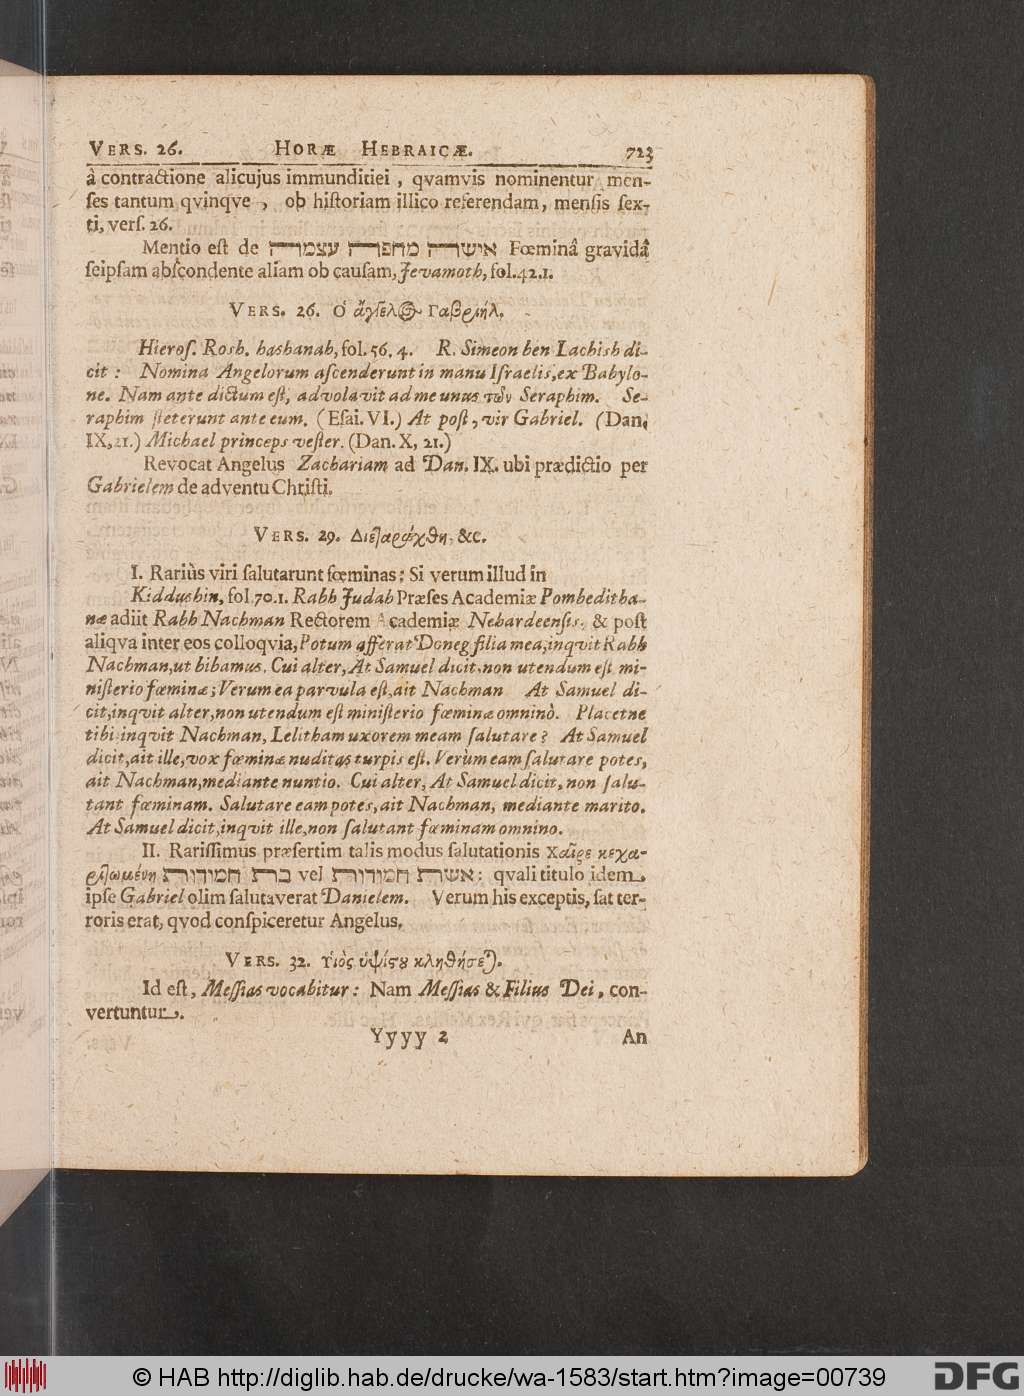 VERS. 26. HORÆ HEBRAICÆ. 723
à contractione alicujus immunditiei, qvamvis nominentur men-
ses tantum qvinqve, ob historiam illico referendam, mensis sex-
ti, vers. 26.
Mentio est de אישרה מחפרה עצמרה Fœminâ gravidâ
seipsam abscondente aliam ob causam, Jevamoth, fol. 42. 1.
VERS. 26. Ὁ ἄγγελος Γαβριήλ.
Hieros. Rosh. hashanah, fol. 56. 4. R. Simeon ben Lachish di-
cit: Nomina Angelorum ascenderunt in manu Israelis, ex Babylo-
ne. Nam ante dictum est, advolavit ad me unus τῶν Seraphim. Se-
raphim steterunt ante eum. (Esai. VI.) At post, vir Gabriel. (Dan.
IX, 21.) Michael princeps vester. (Dan. X, 21.)
Revocat Angelus Zachariam ad Dan. IX. ubi prædictio per
Gabrielem de adventu Christi.
VERS. 29. Διεταράχθη, &c.
I. Rariùs viri salutarunt fœminas: Si verum illud in
Kiddushin, fol. 70. 1. Rabh Judah Præses Academiæ Pombeditha-
næ adiit Rabh Nachman Rectorem Academiæ Nehardeensis, & post
aliqva inter eos colloqvia, Potum afferat Doneg filia mea, inqvit Rabh
Nachman, ut bibamus. Cui alter, At Samuel dicit, non utendum est mi-
nisterio fœminæ; Verum ea parvula est, ait Nachman At Samuel di-
cit, inqvit alter, non utendum est ministerio fœminæ omninò. Placetne
tibi inqvit Nachman, Lelitham uxorem meam salutare? At Samuel
dicit, ait ille, vox fœminæ nuditas turpis est. Verùm eam salutare potes,
ait Nachman, mediante nuntio. Cui alter, At Samuel dicit, non salu-
tant fœminam. Salutare eam potes, ait Nachman, mediante marito.
At Samuel dicit, inqvit ille, non salutant fœminam omnino.
II. Rarissimus præsertim talis modus salutationis χαῖρε κεχα-
ριτωμένη ברת חמודורת vel אשרת חמודורת: qvali titulo idem
ipse Gabriel olim salutaverat Danielem. Verum his exceptis, sat ter-
roris erat, qvod conspiceretur Angelus.
VERS. 32. Υἱὸς ὑψίστου κληθήσεται.
Id est, Messias vocabitur: Nam Messias & Filius Dei, con-
vertuntur.
Yyyy 2 An
© HAB http://diglib.hab.de/drucke/wa-1583/start.htm?image=00739 DFG